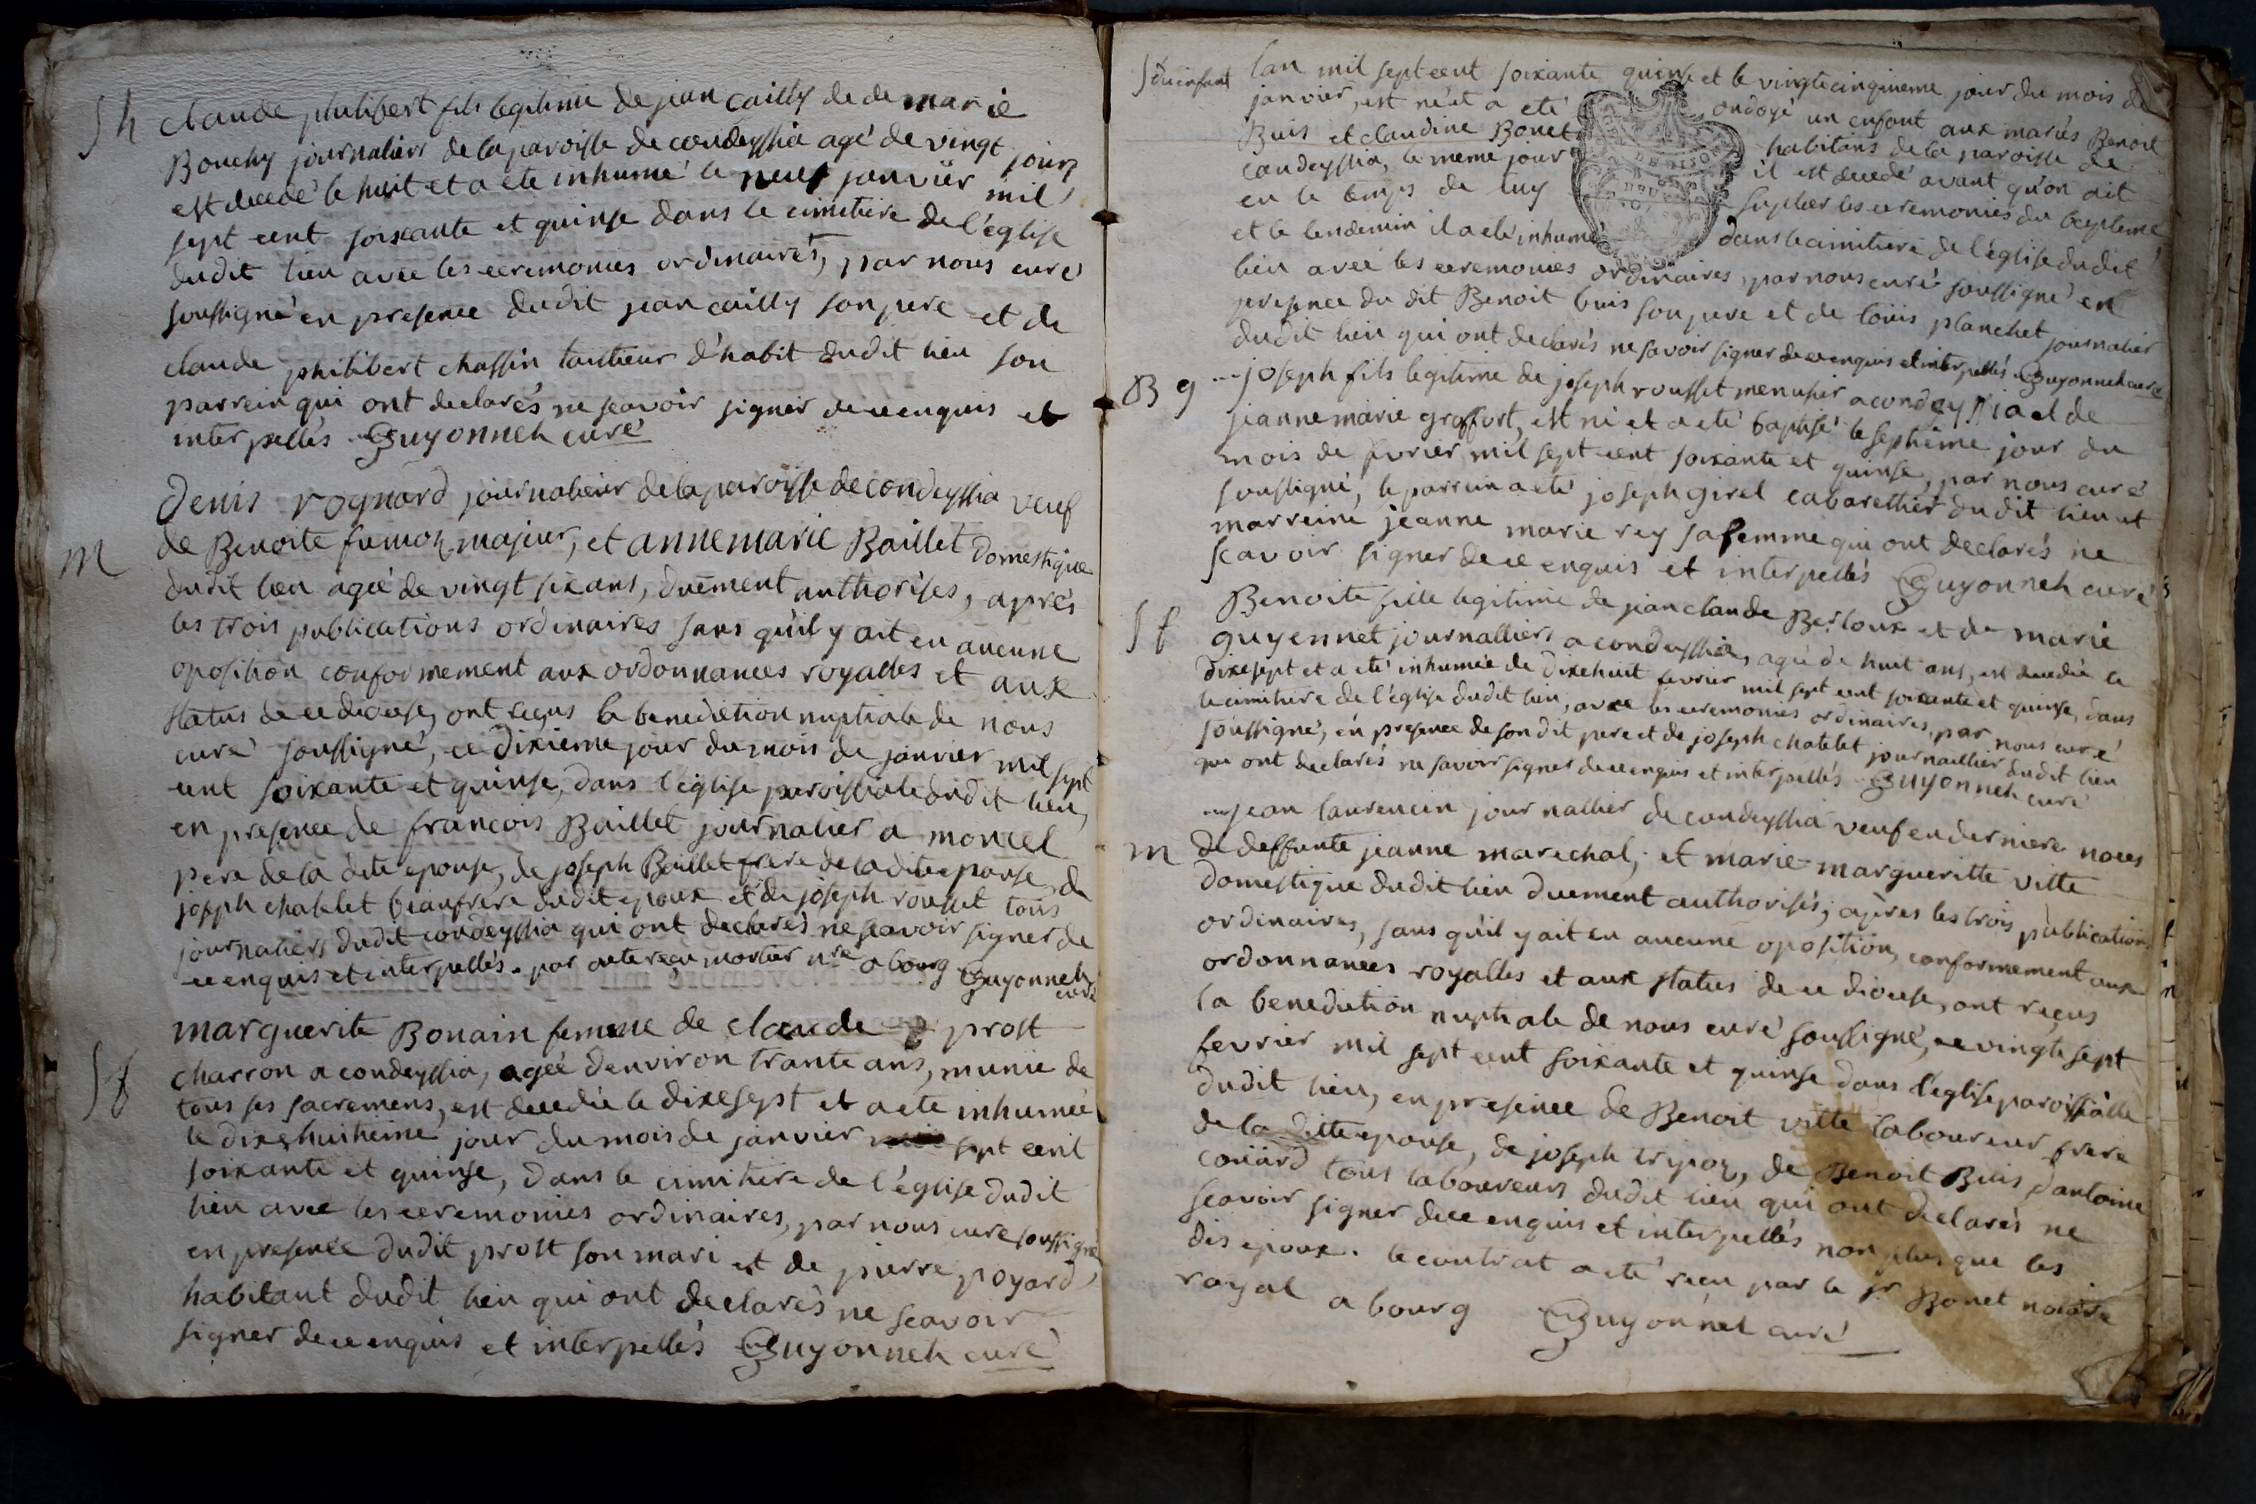 Sh
claude philibert fils legitime de jean cailly de de marie
Bouchy journaliers de la paroisse de condeyssia agé de vingt jours
est decedé le huit et a ete inhumé le neuf janvier mil
sept cent soixante et quinse dans le cimetiere de l'église
dudit lieu avec les ceremonies ordinaires, par nous curé
soussigné en presence dudit jean cailly son pere et de
claude philibert chassin tailleur d'habit dudit lieu son
parrein qui ont declarés ne scavoir signer de ce enquis et
interpellés. Guyonneh curé
M
Denis rognard journalier de la paroisse de condeyssia veuf
de Benoite fumoz majeur, et anne marie Baillet domestique
dudit lieu agée de vingt six ans, duement authorisés, aprés
les trois publications ordinaires sans qu'il y ait eu aucune
oposition conformement aux ordonnances royalles et aux
status de ce diocese, ont reçus la benediction nuptiale de nous
curé soussigné, ce dixieme jour du mois de janvier mil sept
cent soixante et quinse, dans l'église paroissiale dudit lieu,
en presence de francois Baillet journalier a moncel
pere de la dite epouse, de joseph Baillet frere de la dite epouse, de
joseph chatelet beaufrere dudit epoux et de joseph rousset tous
journaliers dudit condeyssia qui ont declarés ne scavoir signer de
ce enquis et interpellés. par acte reçu mortier nre a bourg Guyonneh
curé
Sf
marguerite Bonain femme de claude prost
charron a condeyssia, agée d'environ trante ans, munie de
tous ses sacremens, est decedée le dixesept et a ete inhumée
le dixehuitieme jour du mois de janvier sept cent
soixante et quinse, dans le cimitiere de l'église dudit
lieu avec les ceremonies ordinaires, par nous curé soussigné
en presence dudit prost son mari et de pierre poyard,
habitant dudit lieu qui ont declarés ne scavoir
signer de ce enquis et interpellés Guyonneh curé
S d'un enfant
lan mil sept cent soixante quinse et le vingtecinquieme jour du mois de
janvier, est né et a eté ondoyé un enfant aux mariés Benoit
Buis et claudine Bonet habitans de la paroisse de
condeyssia, le meme jour il est decedé avant qu'on ait
eu le temps de luy supleer les ceremonies du bapteme
et le lendemin il a eté inhumé dans le cimitiere de l'église dudit
lieu avec les ceremonies ordinaires, par nous curé soussigné en
presence du dit Benoit buis son pere et de loüis planchet journalier
dudit lieu qui ont declarés ne savoir signer de ce enquis et interpellés Guyonneh curé
B g
joseph fils legitime de joseph rousset menusier a condeyssia et de
jeanne marie groffort, est né et a eté baptisé le septieme jour du
mois de fevrier mil sept cent soixante et quinse, par nous curé
soussigné, le parrein a eté joseph girel cabarettier dudit lieu et
marreine jeanne marie rey sa femme qui ont declarés ne
scavoir signer de ce enquis et interpellés Guyonneh curé
Sf
Benoite fille legitime de jean claude Berloux et de marie
guyennet journalliers a condeyssia, agée de huit ans, est decedée le
dixesept et a eté inhumée de dixehuit fevrier mil sept cent soixante et quinse, dans
le cimitiere de l'église dudit lieu, avec les ceremonies ordinaires, par nous curé
soussigné, en presence de son dit pere et de joseph chatelet journallier dudit lieu
qui ont declarés ne savoir signer de ce enquis et interpellés Guyonneh curé
M
jean laurencin journallier de condeyssia veuf en derniere noces
de deffunte jeanne marechal, et marie margueritte vitte
domestique dudit lieu duement authorisés, apres les trois publications
ordinaires, sans qu'il y ait eu aucune oposition, conformement aux
ordonnances royalles et aux status de ce diocese, ont reçus
la benediction nuptiale de nous curé soussigné, ce vingtesept
fevrier mil sept cent soixante et quinse dans l'église paroissialle
dudit lieu, en presence de Benoit vitte laboureur frere
de la ditte epouse, de joseph tripoz, de Benoit Buis d'antoine
coüard tous laboureurs dudit lieu qui ont declarés ne
scavoir signer de ce enquis et interpellés non plus que les
dis epoux. le contrat a eté reçu par le sr Bonet notaire
royal a bourg Guyonnet curé